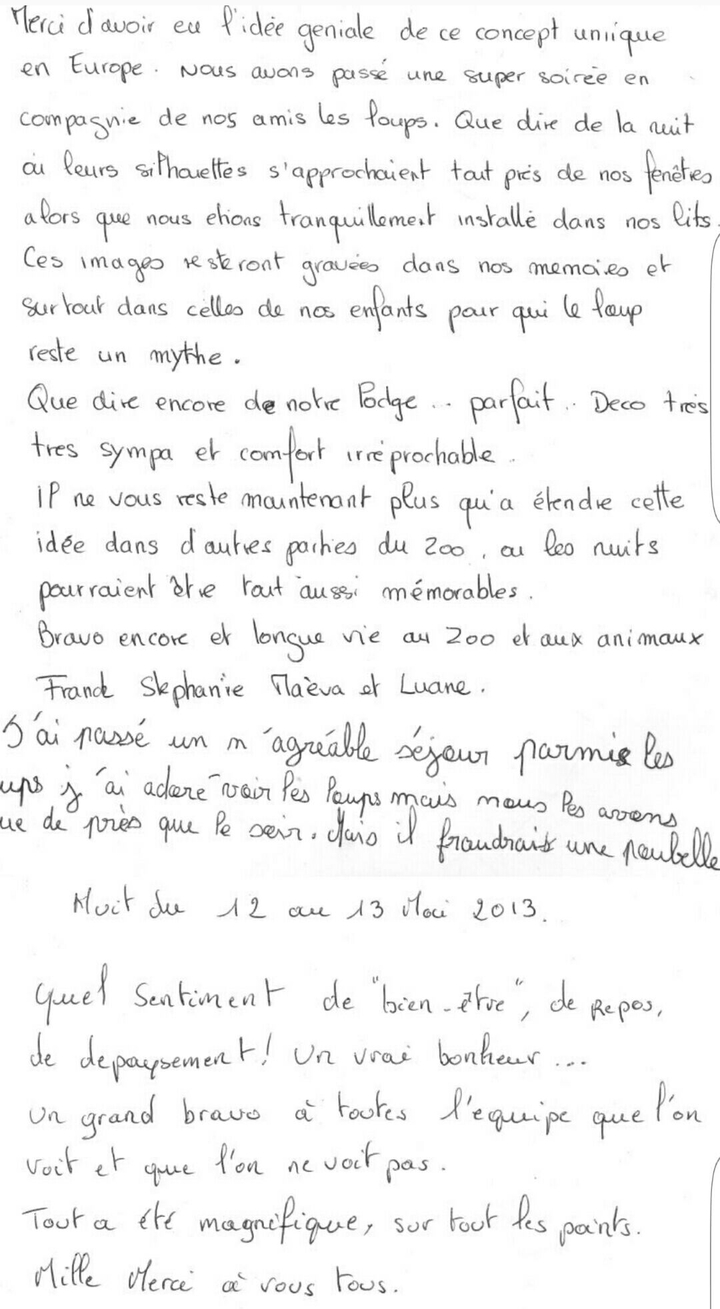 Merci d'avoir eu l'idée geniale de ce concept unique
en Europe. Nous avons passé une super soirée en
compagnie de nos amis les loups. Que dire de la nuit
où leurs silhouettes s'approchaient tout près de nos fenêtres
alors que nous etions tranquillement installé dans nos lits.
Ces images resteront gravées dans nos memoires et
surtout dans celles de nos enfants pour qui le loup
reste un mythe.
Que dire encore de notre lodge .. parfait .. Deco très
tres sympa et comfort irréprochable.
il ne vous reste maintenant plus qu'a étendre cette
idée dans d'autres parties du Zoo, ou les nuits
pourraient être tout aussi mémorables.
Bravo encore et longue vie au Zoo et aux animaux
Franck Stephanie Maèva et Luane.
J'ai passé un agréable séjour parmis les
ups j'ai adore voir les loups mais nous les avons
ue de près que le soir. Mais il fraudrait une poubelle
Nuit du 12 au 13 Mai 2013.
Quel sentiment de "bien-être", de repos,
de depaysement! Un vrai bonheur ...
Un grand bravo à toutes l'equipe que l'on
voit et que l'on ne voit pas.
Tout a été magnifique, sur tout les points.
Mille Merci à vous tous.